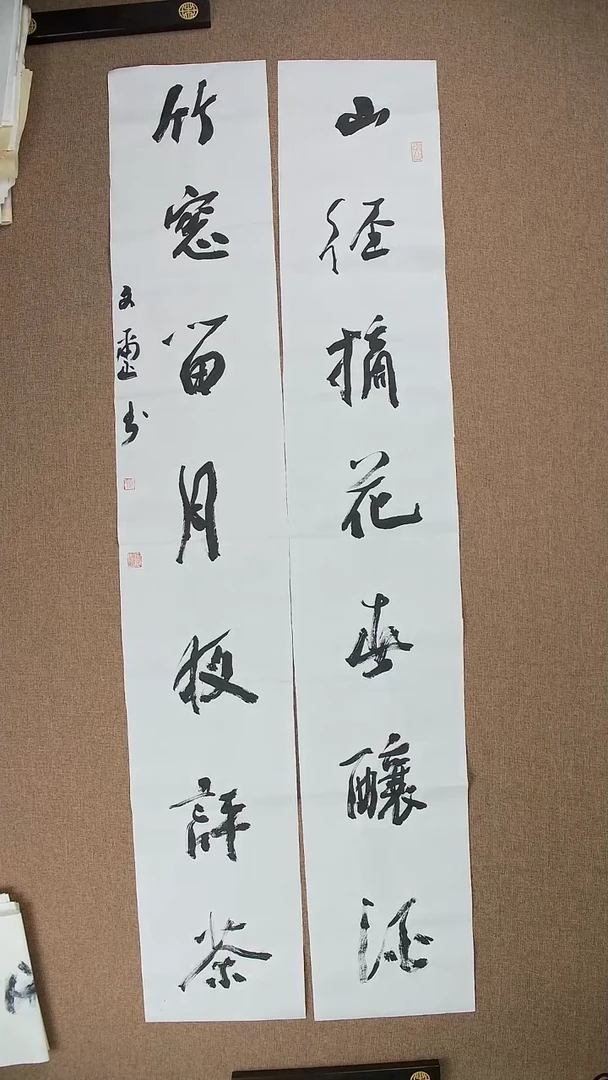 山径摘花春釀酒
竹窓留月夜評茶